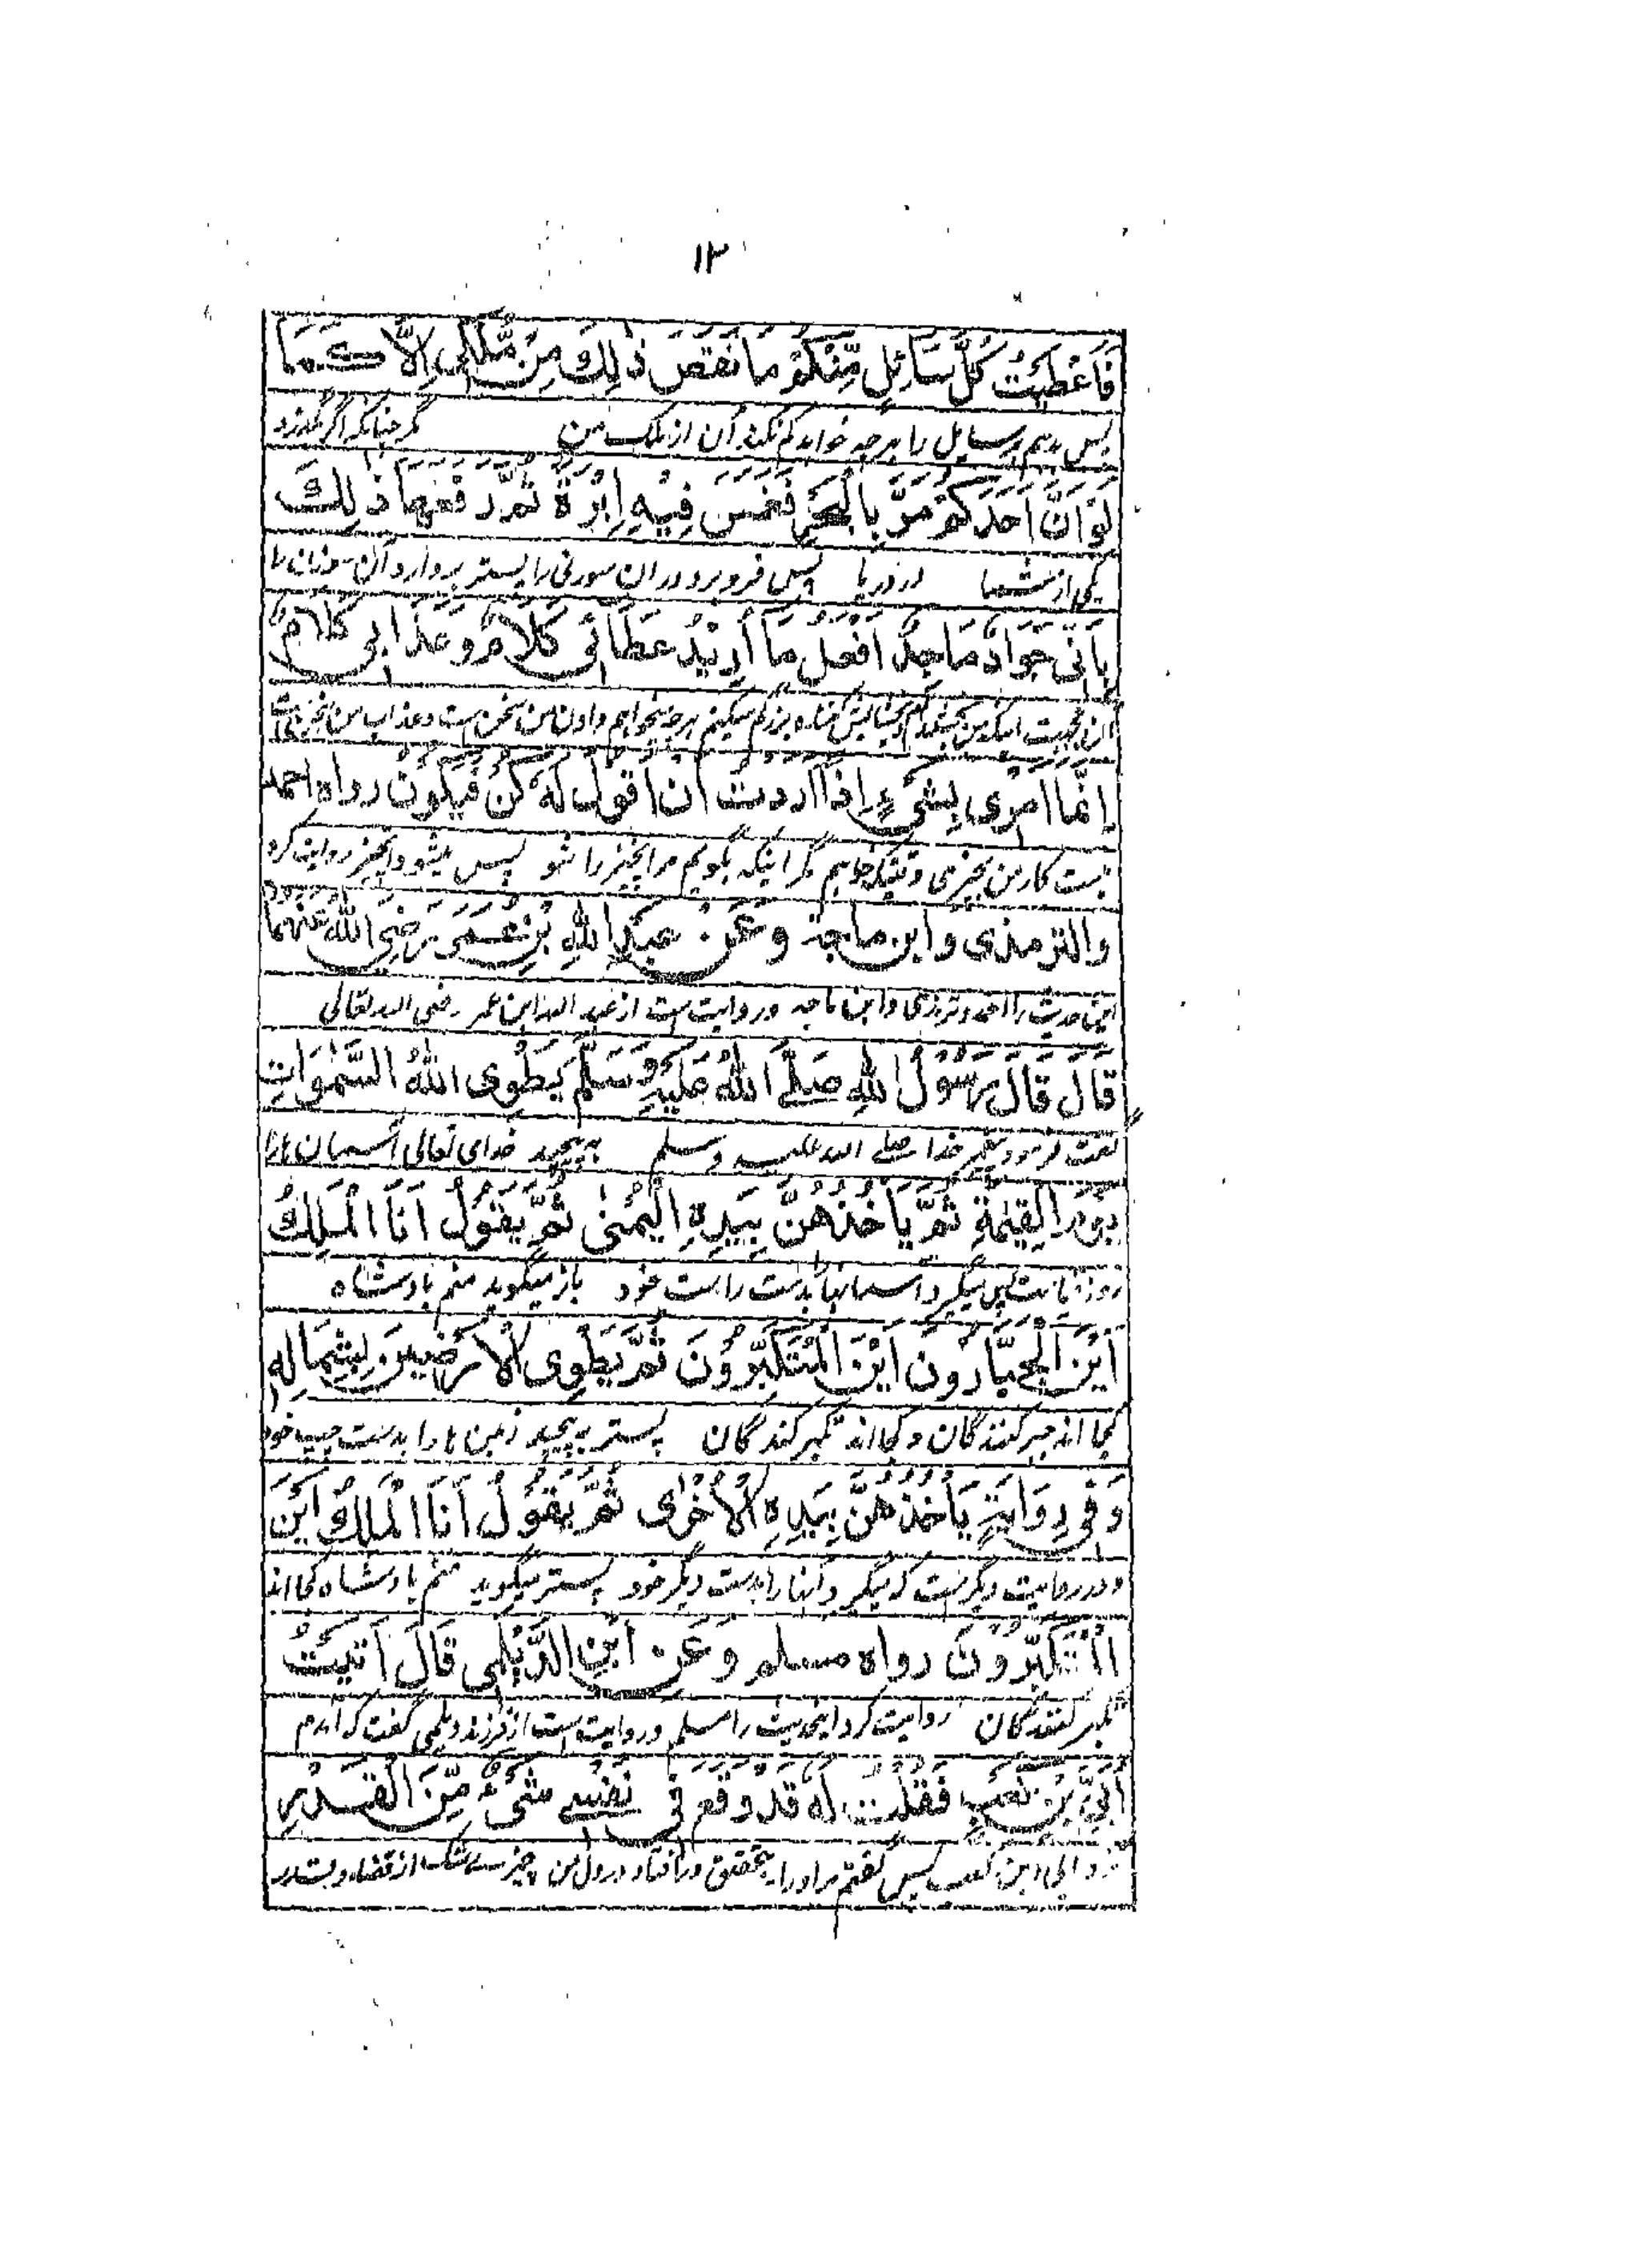 ۱۳
فَاَعْطَيْتُ كُلَّ سَائِلٍ مِّنْكُمْ مَا نَقَصَ ذٰلِكَ مِنْ مُّلْكِي اِلَّا كَمَا
پس بدهم هر سایل را هر چه خواهد کم نکند آن از ملک من مگر چنانکه اگر بگذرد
لَوْ اَنَّ اَحَدَكُمْ مَرَّ بِالْبَحْرِ فَغَمَسَ فِيْهِ اِبْرَةً ثُمَّ رَفَعَهَا ذٰلِكَ
یکی از شما در دریا پس فرو برد دران سوزنی را پستر بردارد آن سوزن را
بِاَنِّي جَوَادٌ مَاجِدٌ اَفْعَلُ مَا اُرِيْدُ عَطَائِي كَلَامٌ وَعَذَابِي كَلَامٌ
میکنم هر چه میخواهم دادن من سخن ست و عذاب من
اِنَّمَا اَمْرِي لِشَيْءٍ اِذَا اَرَدْتُ اَنْ اَقُوْلَ لَهٗ كُنْ فَيَكُوْنُ رواه احمد
نیست کار من بچیزی وقتیکه خواهم مگر اینکه بگویم مر آنچیز را شو پس میشود آنچیز روایت کرد
والترمذی وابن ماجة وَعَنْ عَبْدِ اللّٰهِ بْنِ عُمَرَ رَضِيَ اللّٰهُ عَنْهُمَا
این حدیث را احمد و ترمذی و ابن ماجه و روایت ست از عبد الله ابن عمر رضی الله تعالی
قَالَ قَالَ رَسُوْلُ اللّٰهِ صَلَّى اللّٰهُ عَلَيْهِ وَسَلَّمَ يَطْوِي اللّٰهُ السَّمٰوَاتِ
گفت فرمود پیغمبر خدا صلی الله علیه وسلم به پیچد خدای تعالی آسمان ها را
يَوْمَ الْقِيٰمَةِ ثُمَّ يَاْخُذُهُنَّ بِيَدِهِ الْيُمْنٰى ثُمَّ يَقُوْلُ اَنَا الْمَلِكُ
روز قیامت پس میگیرد آسمانها بدست راست خود باز میگوید منم بادشاه
اَيْنَ الْجَبَّارُوْنَ اَيْنَ الْمُتَكَبِّرُوْنَ ثُمَّ يَطْوِي الْاَرْضِيْنَ بِشِمَالِهٖ
کجا اند جبر کنندگان و کجا اند تکبر کنندگان پستر به پیچد زمین ها را بدست چپ خود
وَفِي رِوَايَةٍ يَاْخُذُهُنَّ بِيَدِهِ الْاُخْرٰى ثُمَّ يَقُوْلُ اَنَا الْمَلِكُ اَيْنَ
و در روایت دیگرست که میگیرد آنها را بدست دیگر خود پستر میگوید منم بادشاه کجا اند
الْمُتَكَبِّرُوْنَ رواه مسلم وَعَنْ ابْنِ الدَّيْلَمِي قَالَ اَتَيْتُ
تکبر کنندگان روایت کرد اینحدیث را مسلم و روایت ست از فرزند دیلمی گفت که آمدم
اُبَيَّ بْنَ كَعْبٍ فَقُلْتُ لَهٗ قَدْ وَقَعَ فِي نَفْسِي شَيْءٌ مِّنَ الْقَدْرِ
نزد ابی ابن کعب پس گفتم مر او را بتحقیق در افتاد در دل من چیزے شک از قضا و قدر